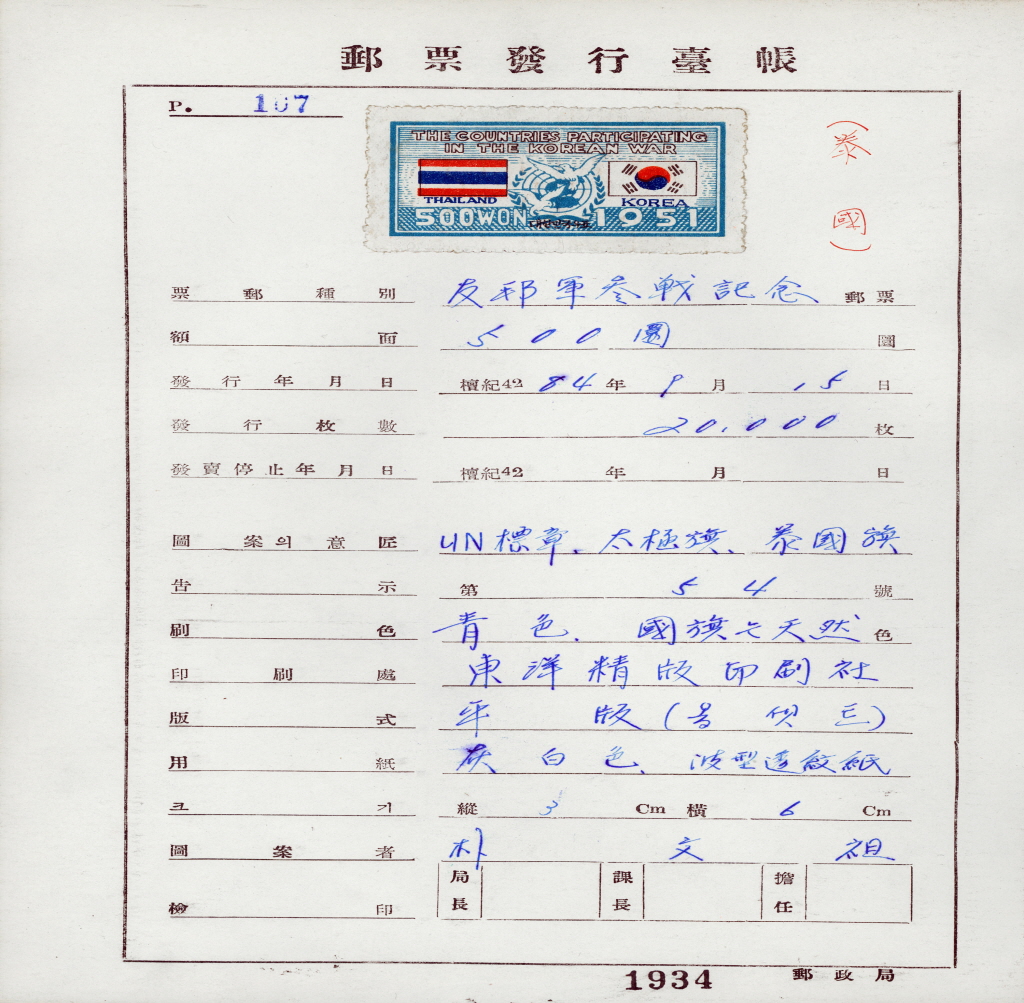 郵票發行臺帳
P. 107
(泰國)
THE COUNTRIES PARTICIPATING
IN THE KOREAN WAR
THAILAND KOREA
500WON 1951
票郵種別 友邦軍参戦記念 郵票
額面 500圜 圓
發行年月日 檀紀4284年9月15日
發行枚數 20,000枚
發賣停止年月日 檀紀42 年 月 日
圖案의意匠 UN標章、太極旗、泰國旗
告示 第54號
刷色 青色、國旗七天然色
印刷處 東洋精版印刷社
版式 平版
用紙 灰白色、波型透紋紙
크기 縱3Cm橫6Cm
圖案者 朴文祖
檢印 局長 課長 擔任
1934 郵政局